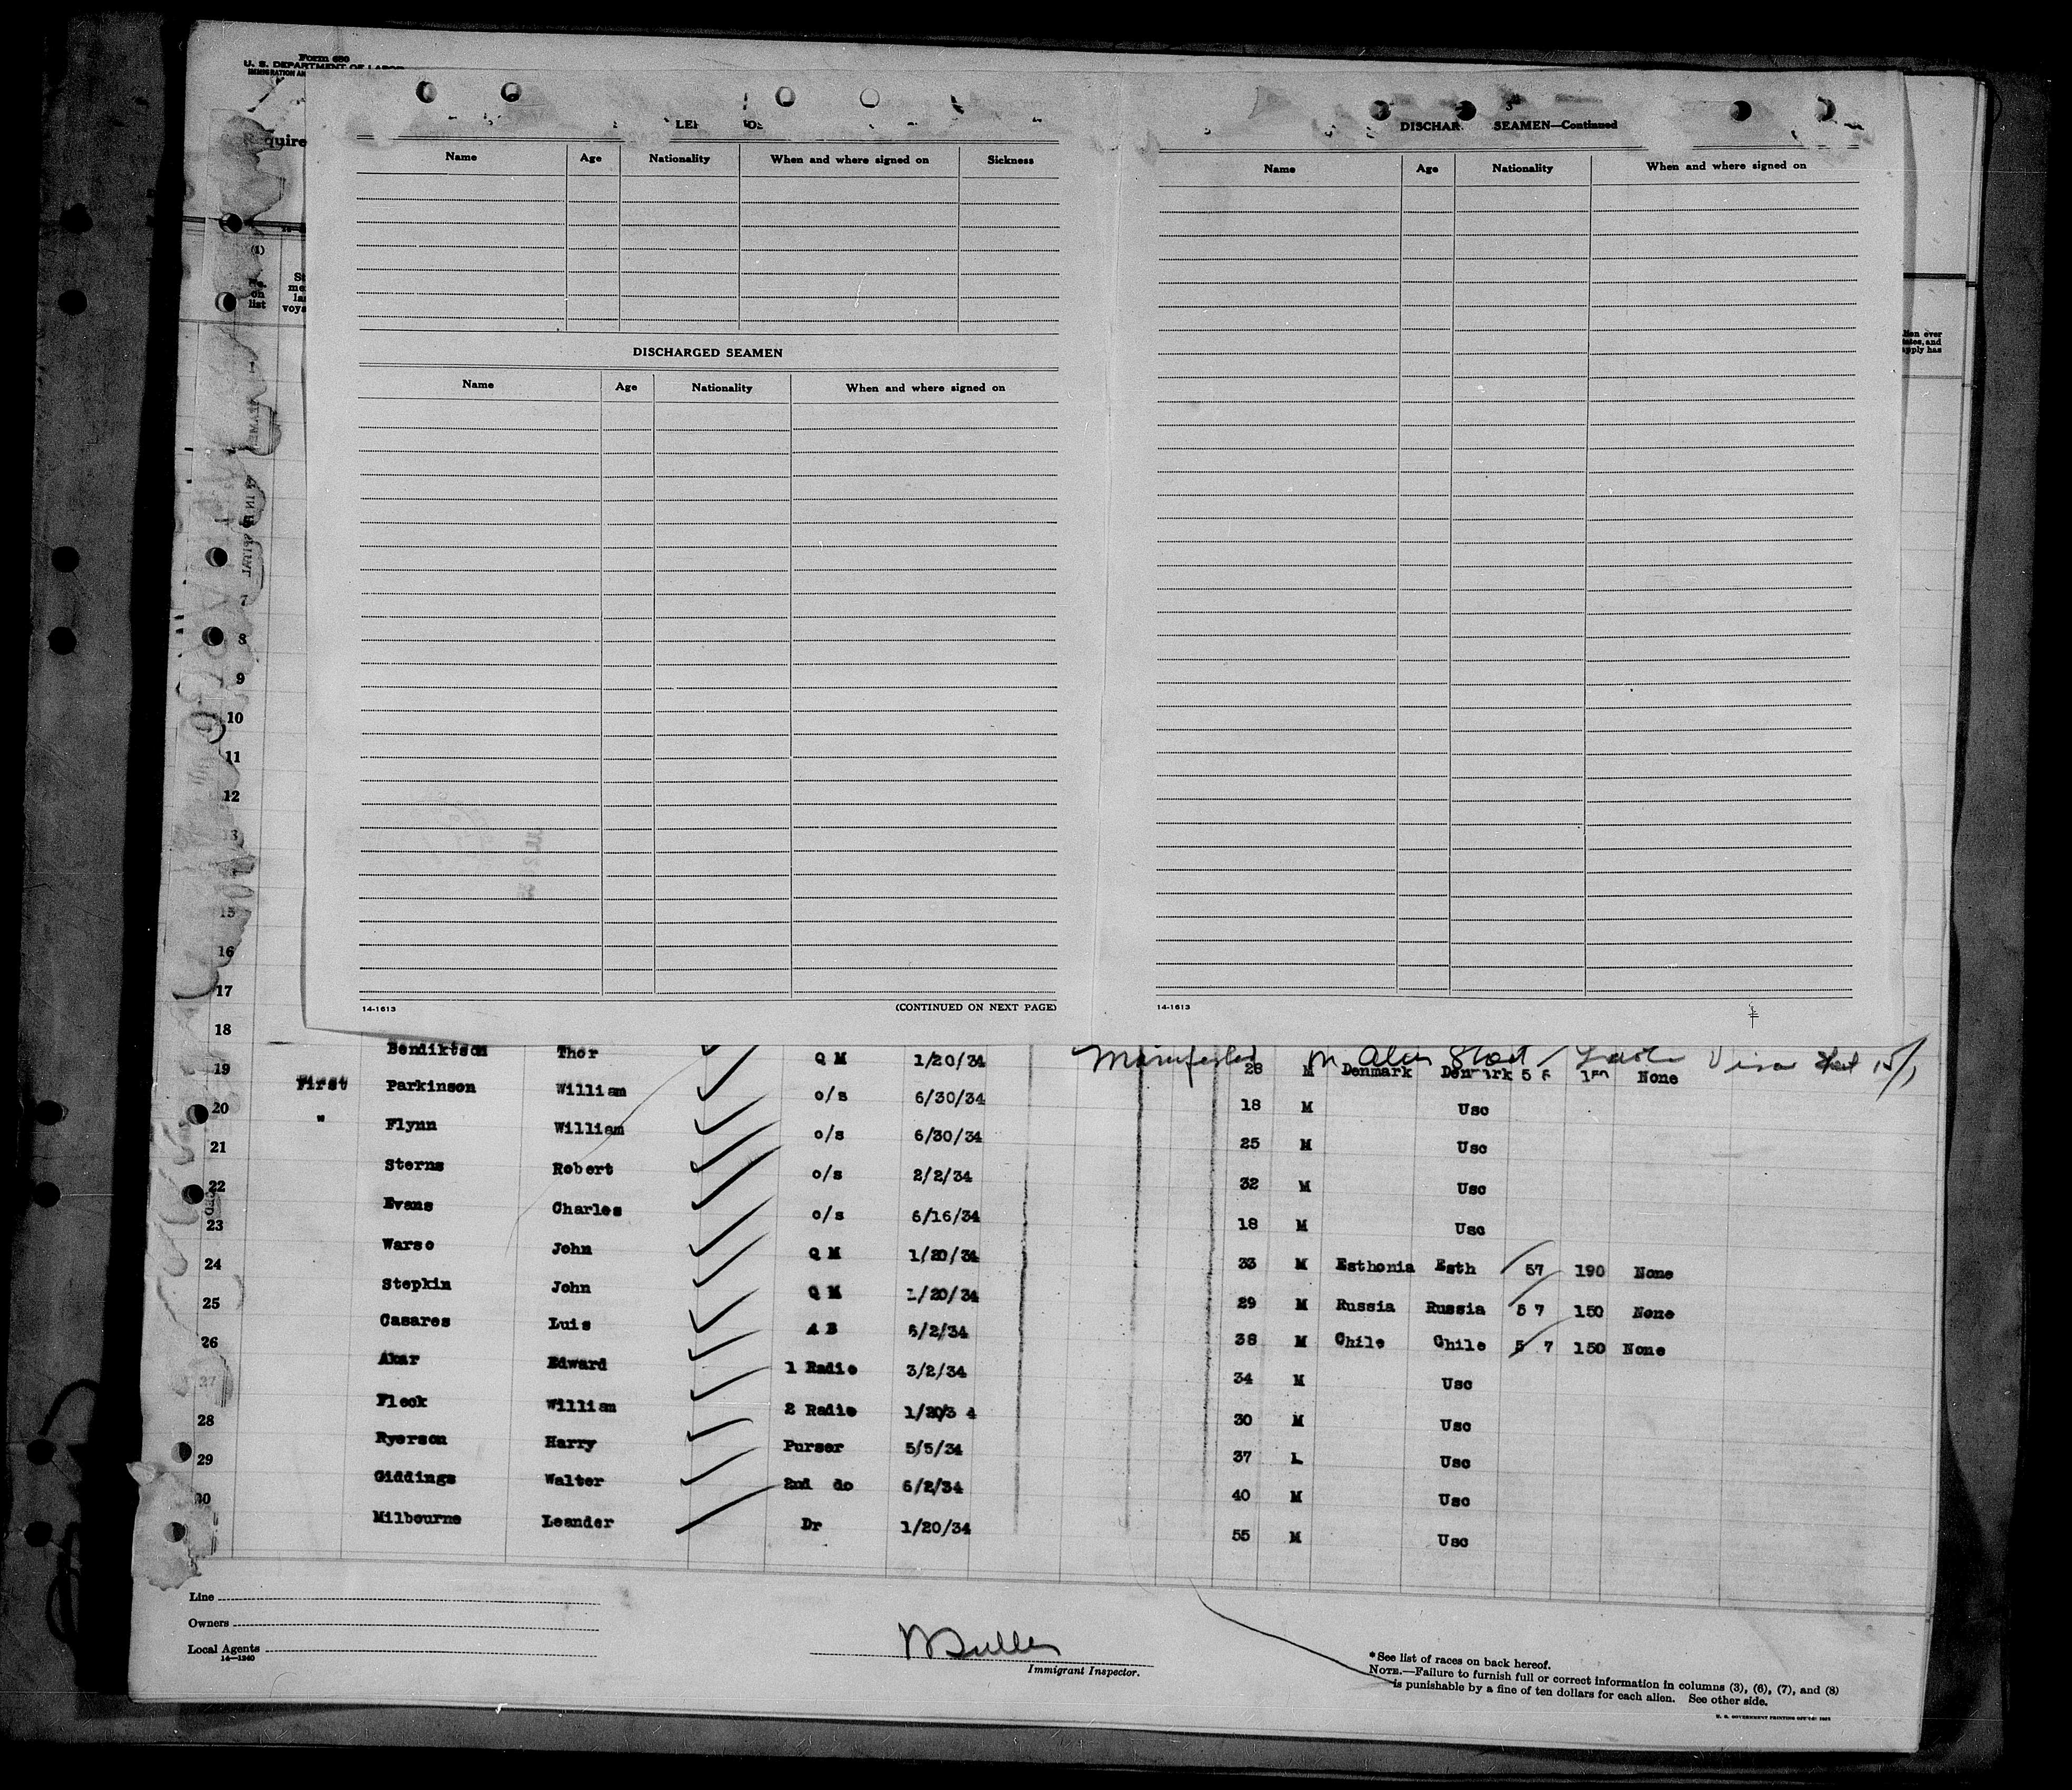 Form 680
U. S. DEPARTMENT OF LABOR
IMMIGRATION AN
quire
(1)
on
list
voya
DISCHAR SEAMEN—Continued
Name Age Nationality When and where signed on Sickness
Name Age Nationality When and where signed on
tates, and
apply has
DISCHARGED SEAMEN
Name Age Nationality When and where signed on
7
8
9
10
11
12
13
15
16
17
14-1613 (CONTINUED ON NEXT PAGE) 14-1613
18
Manifested Visa
19 Bendiktson Thor Q M 1/20/34 28 M Denmark Denmark 5 6 150 None
First Parkinson William o/s 6/30/34 18 M Usc
20 " Flynn William o/s 6/30/34 25 M Usc
21 Sterns Robert o/s 2/2/34 32 M Usc
22 Evans Charles o/s 6/16/34 18 M Usc
23 Warso John Q M 1/20/34 33 M Esthonia Esth 57 190 None
24 Stepkin John Q M 1/20/34 29 M Russia Russia 5 7 150 None
25 Casares Luis A B 6/2/34 38 M Chile Chile 5 7 150 None
26 Akar Edward 1 Radio 3/2/34 34 M Usc
27 Fleck William 2 Radio 1/20/3 4 30 M Usc
28 Ryerson Harry Purser 5/5/34 37 L Usc
29 Giddings Walter 2nd do 6/2/34 40 M Usc
30 Milbourne Leander Dr 1/20/34 55 M Usc
Line
Owners
Local Agents
14—1240
Immigrant Inspector.
* See list of races on back hereof.
NOTE.—Failure to furnish full or correct information in columns (3), (6), (7), and (8)
is punishable by a fine of ten dollars for each alien. See other side.